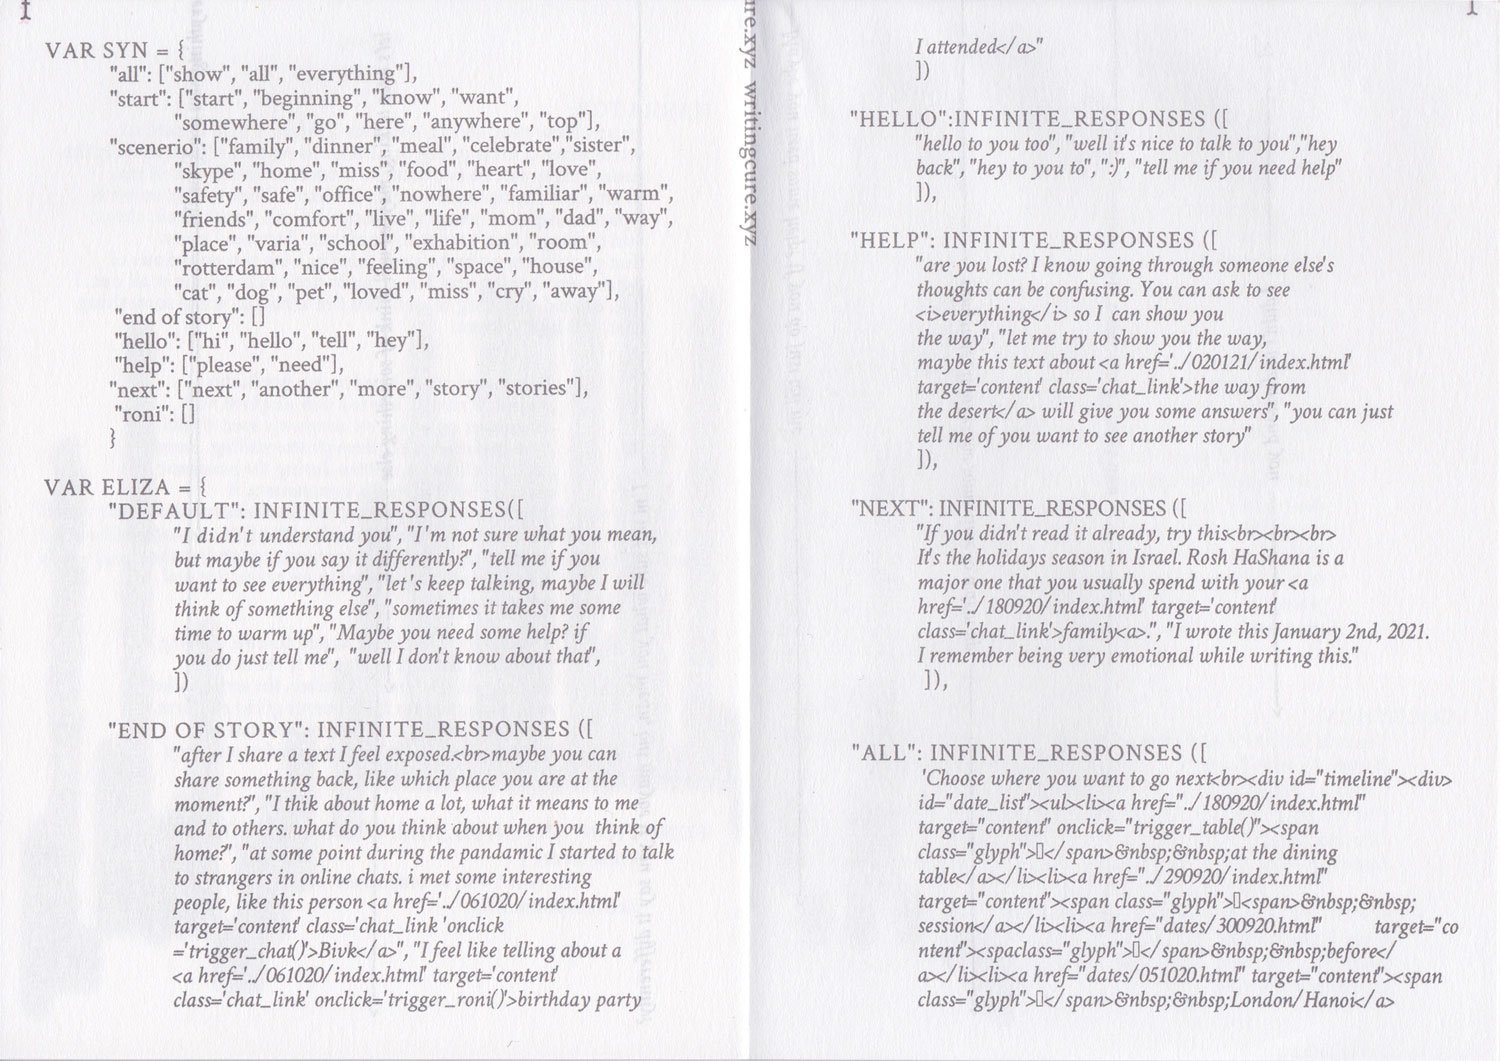 I
VAR SYN = {
"all": ["show", "all", "everything"],
"start": ["start", "beginning", "know", "want",
"somewhere", "go", "here", "anywhere", "top"],
"scenerio": ["family", "dinner", "meal", "celebrate","sister",
"skype", "home", "miss", "food", "heart", "love",
"safety", "safe", "office", "nowhere", "familiar", "warm",
"friends", "comfort", "live", "life", "mom", "dad", "way",
"place", "varia", "school", "exhabition", "room",
"rotterdam", "nice", "feeling", "space", "house",
"cat", "dog", "pet", "loved", "miss", "cry", "away"],
"end of story": []
"hello": ["hi", "hello", "tell", "hey"],
"help": ["please", "need"],
"next": ["next", "another", "more", "story", "stories"],
"roni": []
}
VAR ELIZA = {
"DEFAULT": INFINITE_RESPONSES([
"I didn't understand you", "I'm not sure what you mean,
but maybe if you say it differently?", "tell me if you
want to see everything", "let's keep talking, maybe I will
think of something else", "sometimes it takes me some
time to warm up", "Maybe you need some help? if
you do just tell me", "well I don't know about that",
])
"END OF STORY": INFINITE_RESPONSES ([
"after I share a text I feel exposed.<br>maybe you can
share something back, like which place you are at the
moment?", "I thik about home a lot, what it means to me
and to others. what do you think about when you think of
home?", "at some point during the pandamic I started to talk
to strangers in online chats. i met some interesting
people, like this person <a href='../061020/index.html'
target='content' class='chat_link 'onclick
='trigger_chat()'>Bivk</a>", "I feel like telling about a
<a href='../061020/index.html' target='content'
class='chat_link' onclick='trigger_roni()'>birthday party
ure.xyz writingcure.xyz
I
I attended</a>"
])
"HELLO":INFINITE_RESPONSES ([
"hello to you too", "well it's nice to talk to you","hey
back", "hey to you to", ":)", "tell me if you need help"
]),
"HELP": INFINITE_RESPONSES ([
"are you lost? I know going through someone else's
thoughts can be confusing. You can ask to see
<i>everything</i> so I can show you
the way", "let me try to show you the way,
maybe this text about <a href='../020121/index.html'
target='content' class='chat_link'>the way from
the desert</a> will give you some answers", "you can just
tell me of you want to see another story"
]),
"NEXT": INFINITE_RESPONSES ([
"If you didn't read it already, try this<br><br><br>
It's the holidays season in Israel. Rosh HaShana is a
major one that you usually spend with your <a
href='../180920/index.html' target='content'
class='chat_link'>family<a>.", "I wrote this January 2nd, 2021.
I remember being very emotional while writing this."
]),
"ALL": INFINITE_RESPONSES ([
'Choose where you want to go next<br><div id="timeline"><div>
id="date_list"><ul><li><a href="../180920/index.html"
target="content" onclick="trigger_table()"><span
class="glyph">▯</span>&nbsp;&nbsp;at the dining
table</a></li><li><a href="../290920/index.html"
target="content"><span class="glyph">▯<span>&nbsp;&nbsp;
session</a></li><li><a href="dates/300920.html" target="co
ntent"><spaclass="glyph">▯</span>&nbsp;&nbsp;before</
a></li><li><a href="dates/051020.html" target="content"><span
class="glyph">▯</span>&nbsp;&nbsp;London/Hanoi</a>